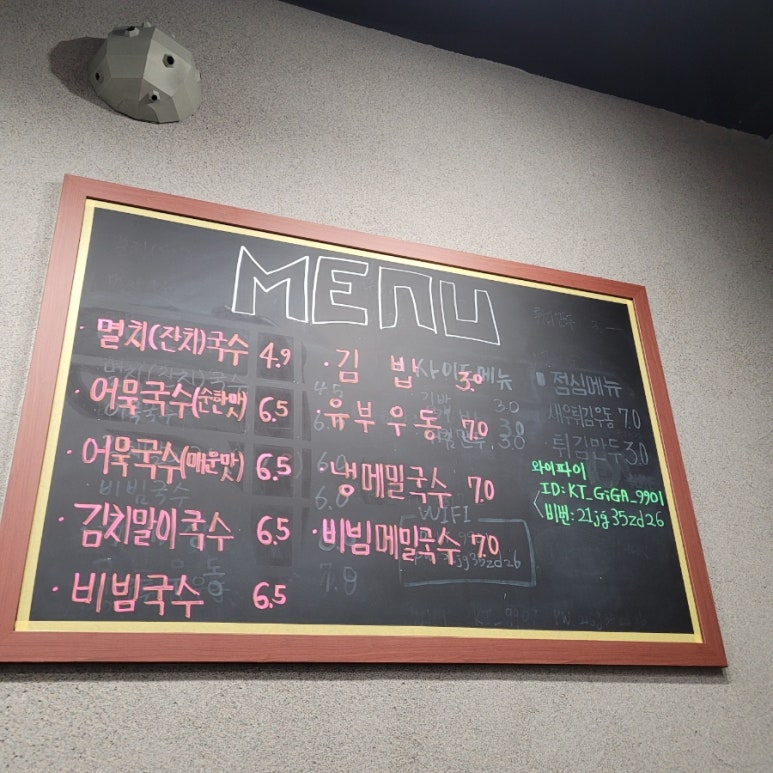 MENU
· 멸치(잔치)국수 4.9
· 어묵국수(순한맛) 6.5
· 어묵국수(매운맛) 6.5
· 김치말이국수 6.5
· 비빔국수 6.5
· 김밥 3.0
· 유부우동 7.0
· 냉메밀국수 7.0
· 비빔메밀국수 7.0
사이드메뉴
점심메뉴
새우튀김우동 7.0
· 튀김만두 3.0
와이파이
ID: KT_GiGA_9901
비번: 21jg35zd26
WIFI